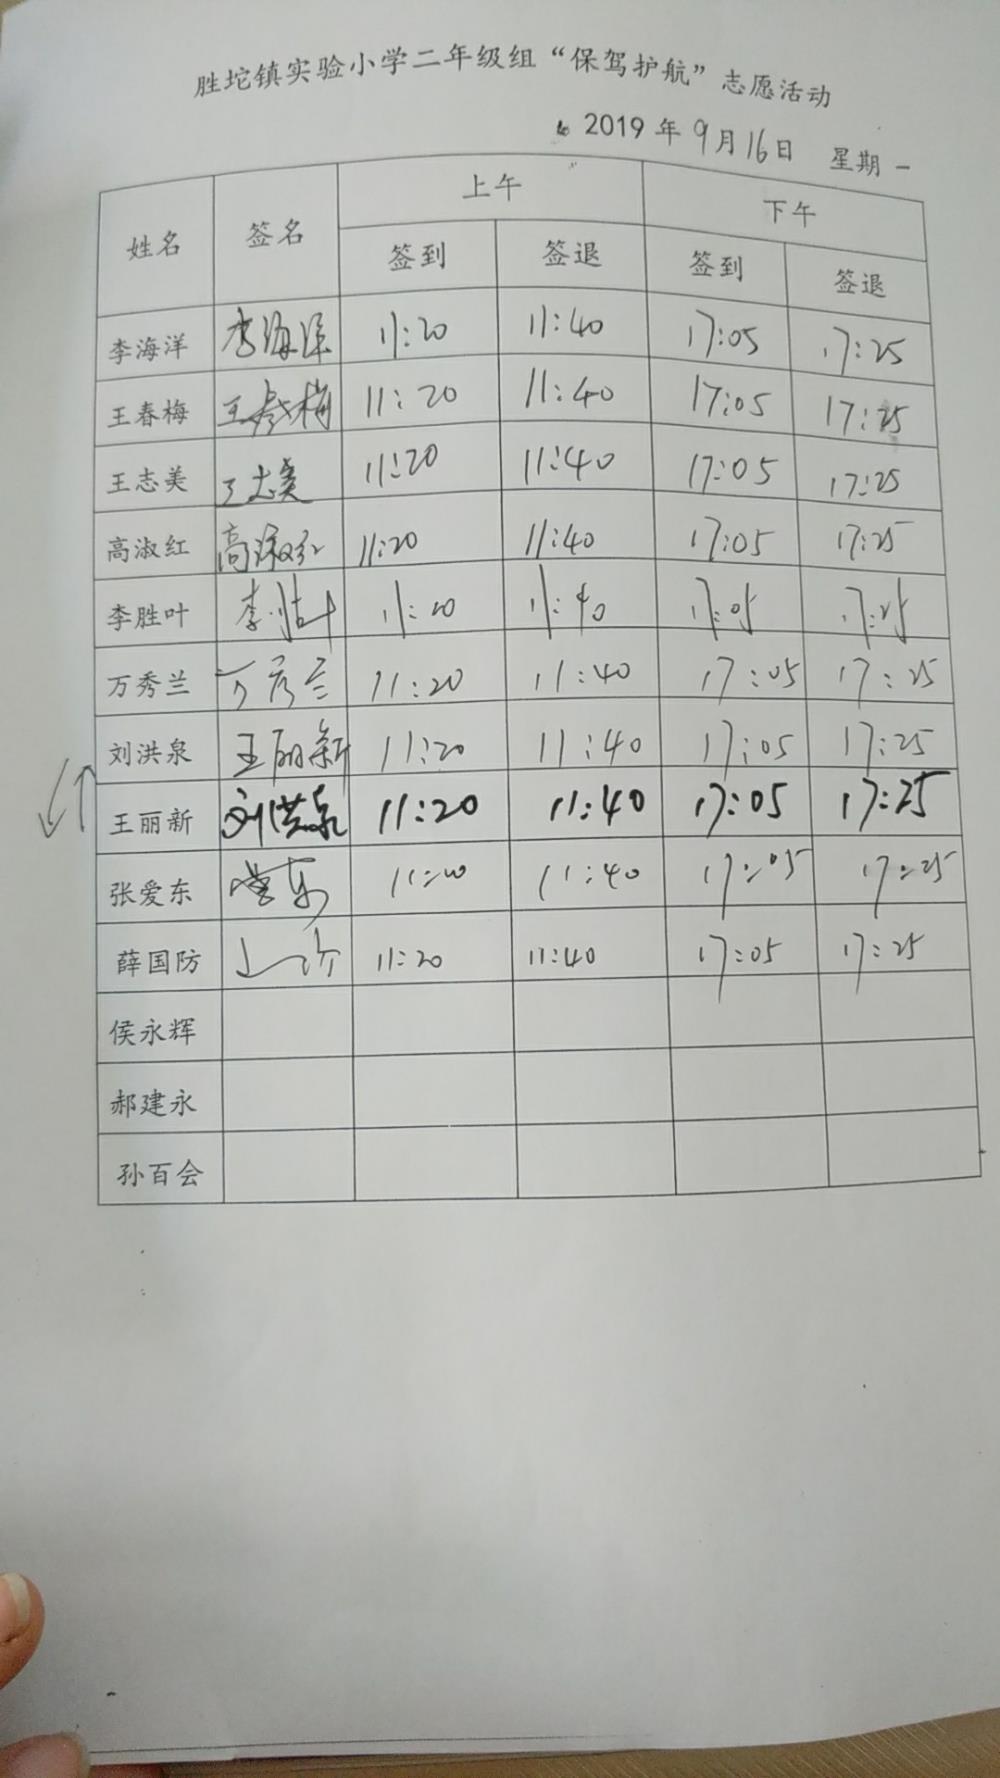 胜坨镇实验小学二年级组“保驾护航”志愿活动
2019年9月16日 星期一
姓名 签名 上午 下午
签到 签退 签到 签退
李海洋 李海洋 11:20 11:40 17:05 17:25
王春梅 王春梅 11:20 11:40 17:05 17:25
王志美 王志美 11:20 11:40 17:05 17:25
高淑红 高淑红 11:20 11:40 17:05 17:25
李胜叶 李胜叶 11:20 11:40 17:05 17:25
万秀兰 万秀兰 11:20 11:40 17:05 17:25
刘洪泉 王丽新 11:20 11:40 17:05 17:25
王丽新 刘洪泉 11:20 11:40 17:05 17:25
张爱东 11:20 11:40 17:05 17:25
薛国防 11:20 11:40 17:05 17:25
侯永辉
郝建永
孙百会